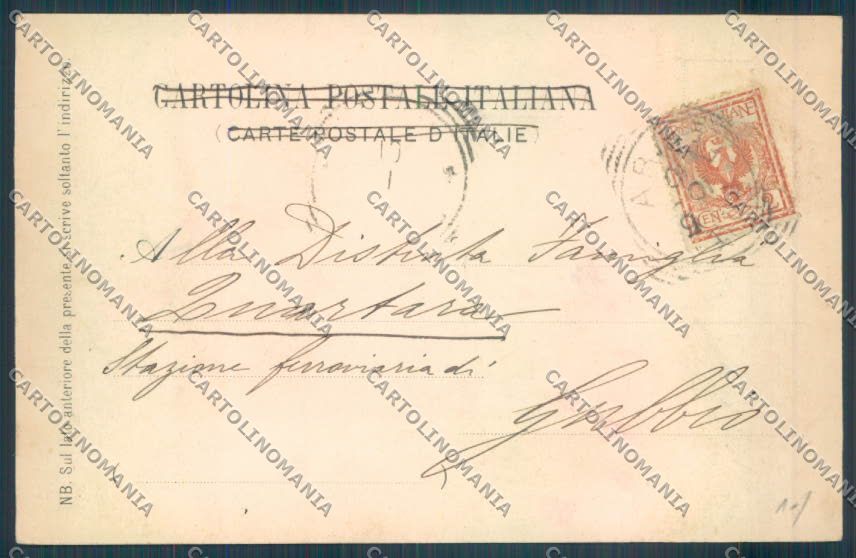 CARTOLINA POSTALE ITALIANA
(CARTE POSTALE D'ITALIE)
Alla Distinta Famiglia
Quartara
Stazione ferroviaria di
Gubbio
NB. Sul lato anteriore della presente si scrive soltanto l'indirizzo.
CARTOLINOMANIA